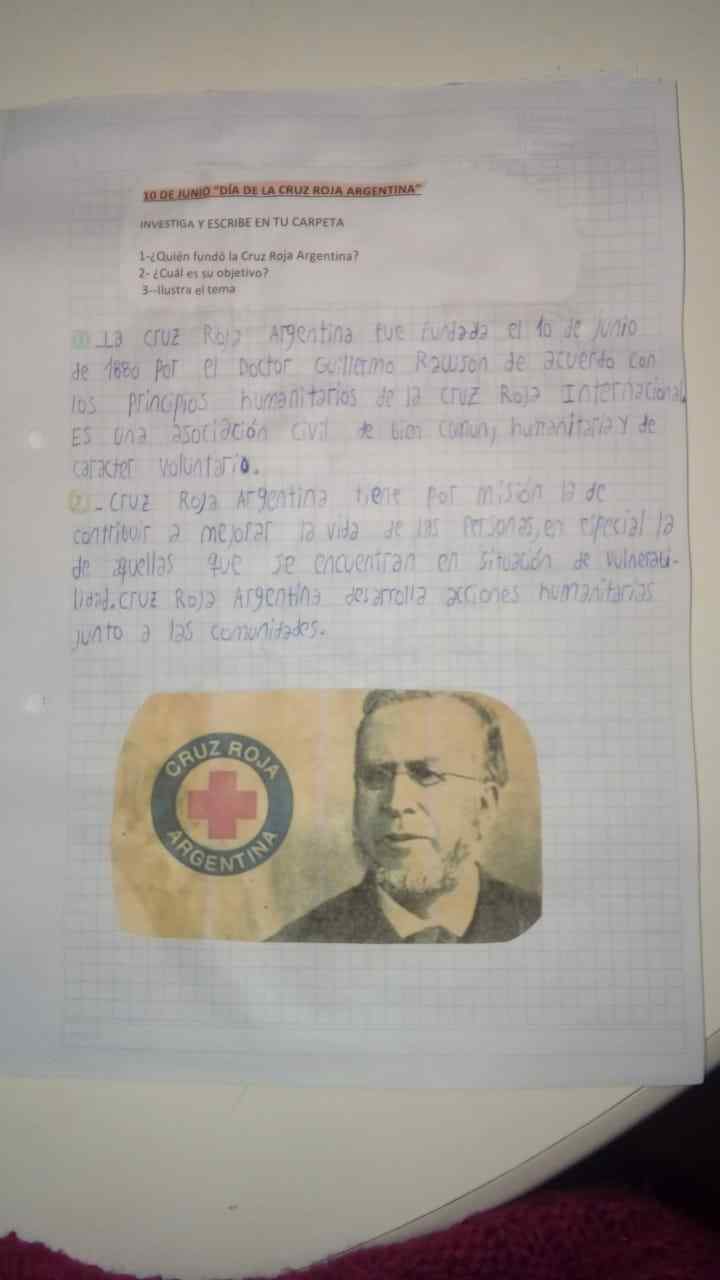 10 DE JUNIO "DÍA DE LA CRUZ ROJA ARGENTINA"
INVESTIGA Y ESCRIBE EN TU CARPETA
1-¿Quién fundó la Cruz Roja Argentina?
2- ¿Cuál es su objetivo?
3--Ilustra el tema
1) La Cruz Roja Argentina fue fundada el 10 de junio
de 1880 por el Doctor Guillermo Rawson de acuerdo con
los principios humanitarios de la cruz Roja Internacional.
ES una asociación civil de bien comun, humanitaria y de
caracter voluntario.
2)_ Cruz Roja Argentina tiene por misión la de
contribuir a mejorar la vida de las personas, en especial la
de aquellas que se encuentran en situación de vulnerabi-
lidad. Cruz Roja Argentina desarrolla acciones humanitarias
junto a las comunidades.
CRUZ ROJA
ARGENTINA